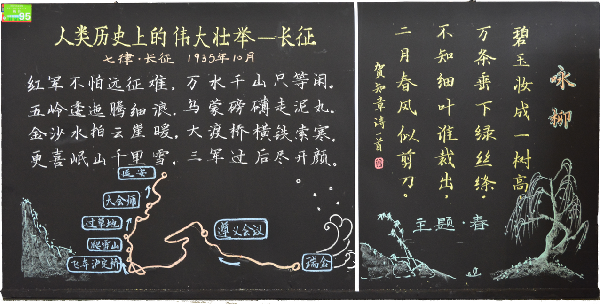 人类历史上的伟大壮举—长征
七律·长征 1935年10月
红军不怕远征难，万水千山只等闲。
五岭逶迤腾细浪，乌蒙磅礴走泥丸。
金沙水拍云崖暖，大渡桥横铁索寒。
更喜岷山千里雪，三军过后尽开颜。
延安
大会师
过草地
爬雪山
飞夺泸定桥
遵义会议
瑞金
咏柳
碧玉妆成一树高，
万条垂下绿丝绦。
不知细叶谁裁出，
二月春风似剪刀。
贺知章诗一首
主题·春